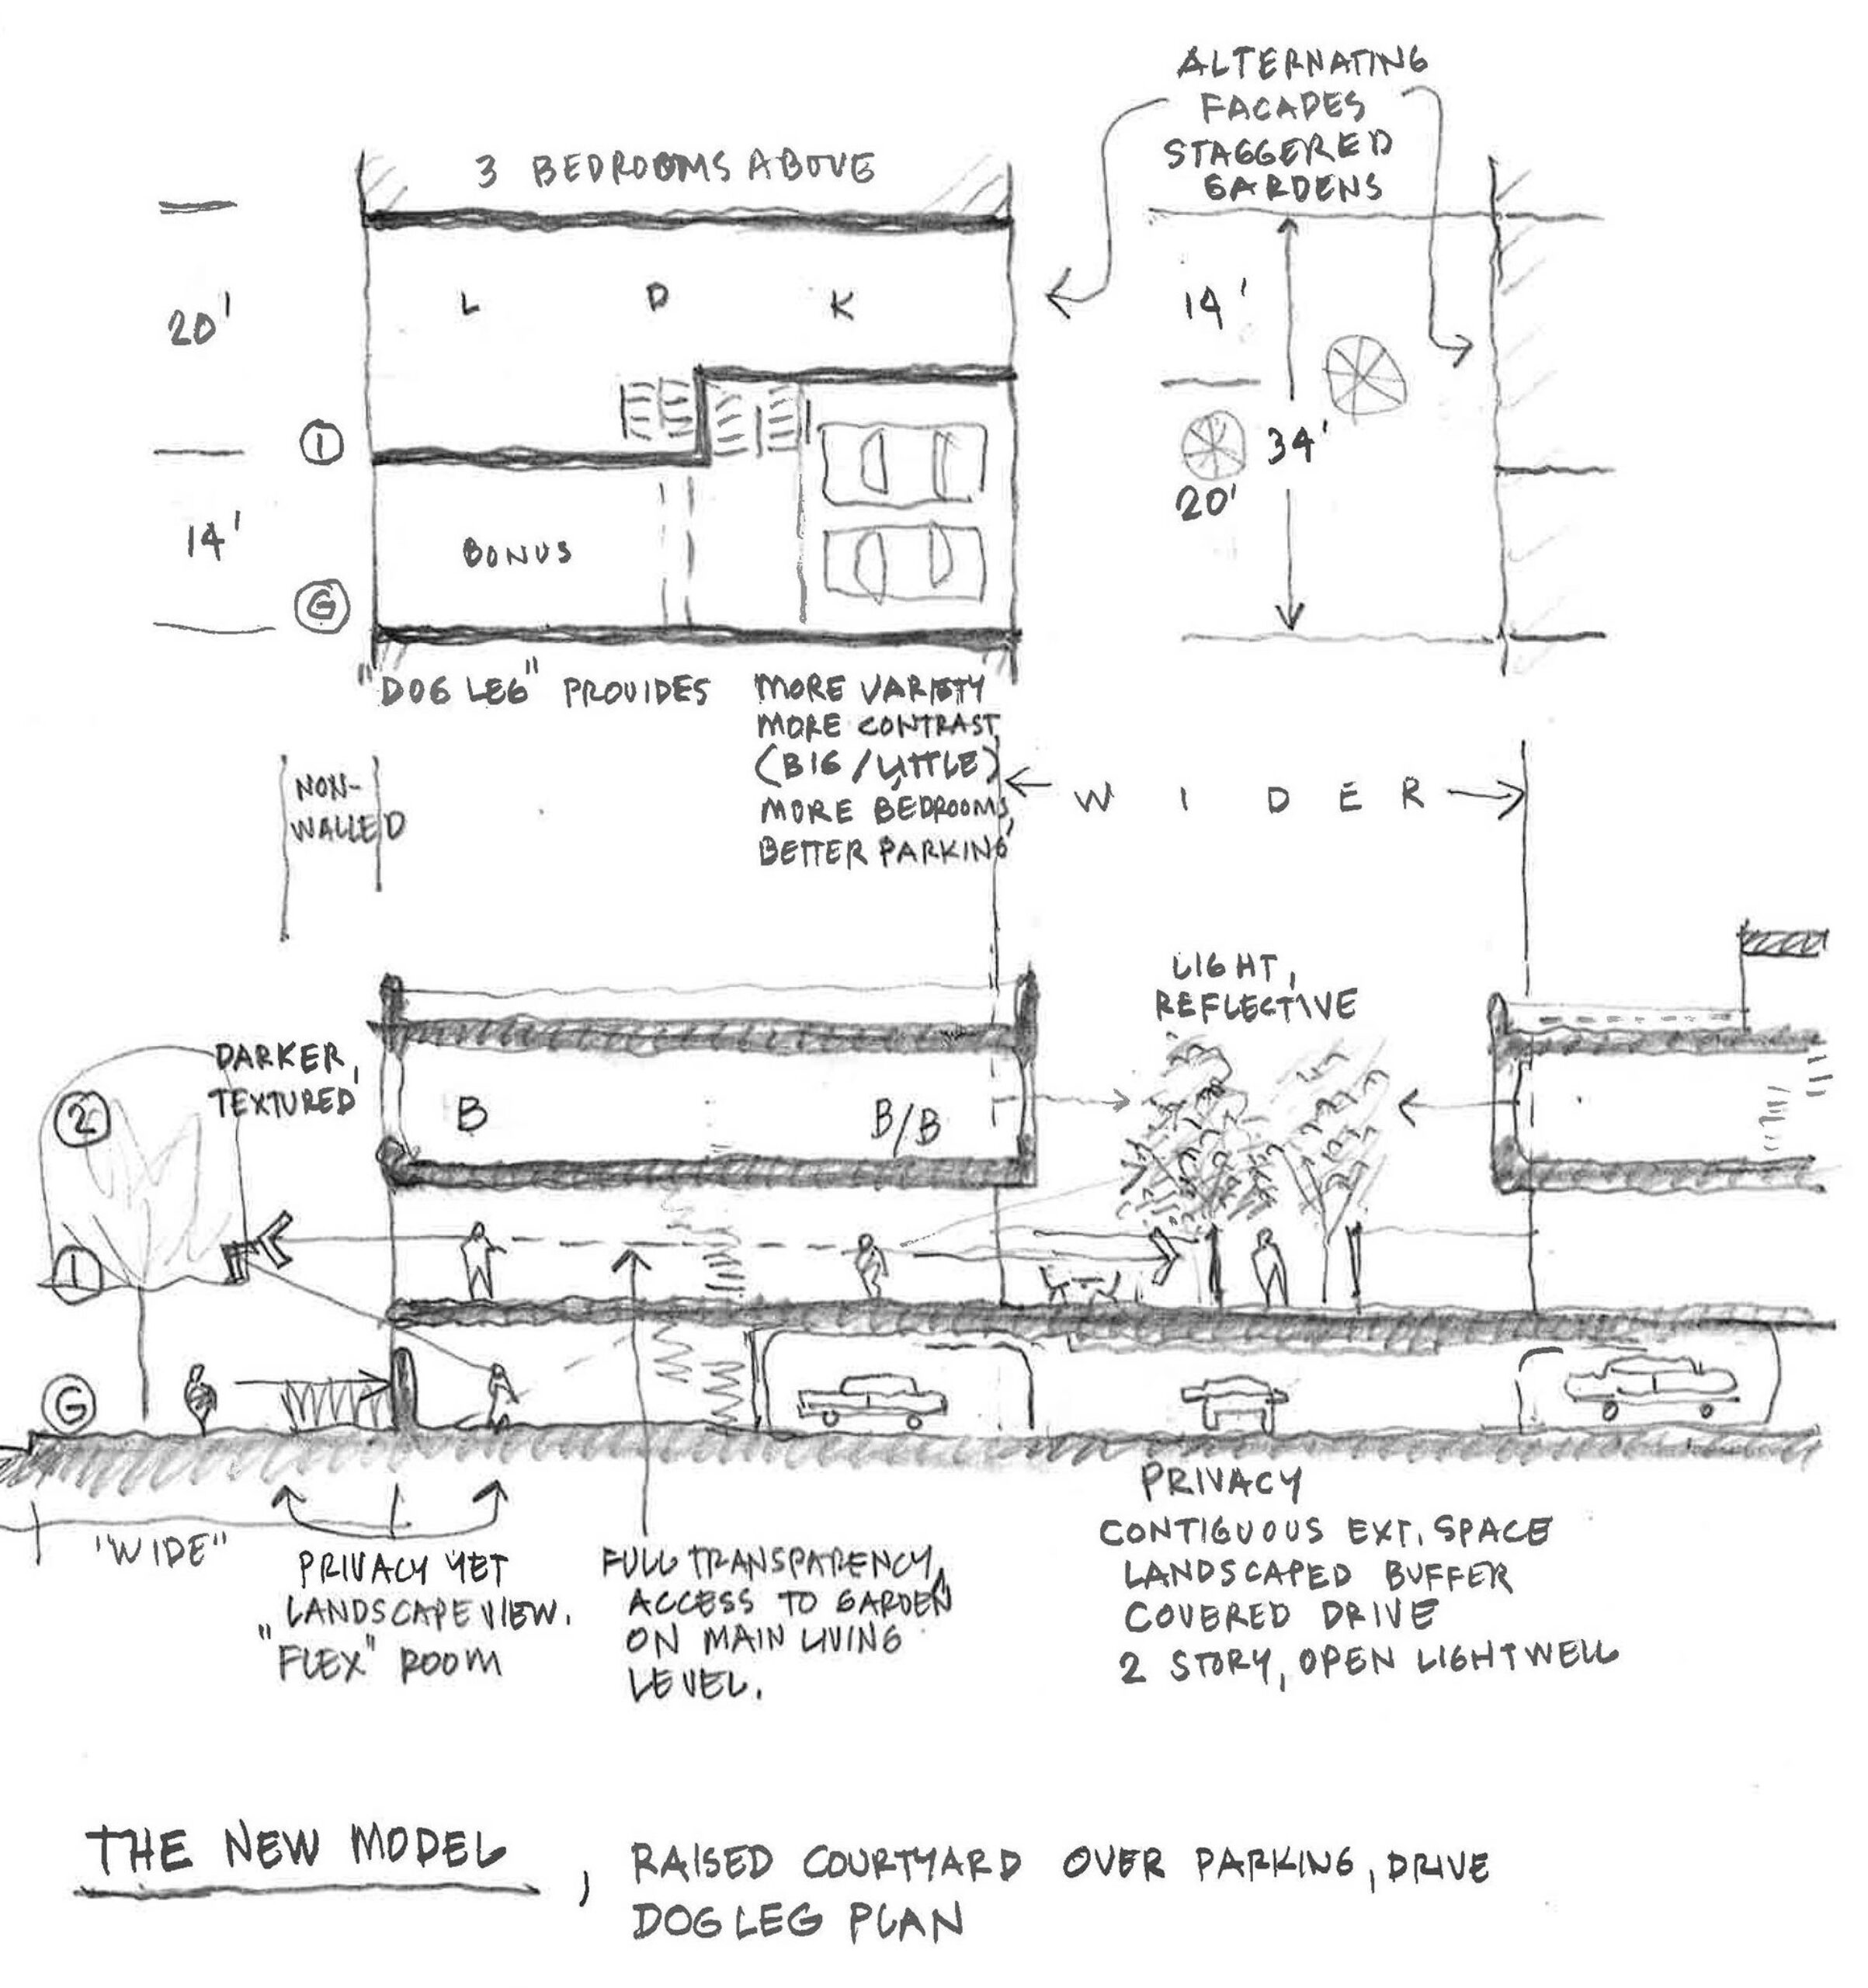 ALTERNATING
FACADES
STAGGERED
GARDENS
3 BEDROOMS ABOVE
20'
L D K
14'
1
34'
20'
14'
BONUS
G
"DOG LEG" PROVIDES MORE VARIETY
MORE CONTRAST
(BIG/LITTLE)
MORE BEDROOMS,
BETTER PARKING
NON-
WALLED
WIDER
LIGHT,
REFLECTIVE
DARKER,
TEXTURED
2
B B/B
1
G
"WIDE"
PRIVACY YET
LANDSCAPE VIEW.
"FLEX" ROOM
FULL TRANSPARENCY,
ACCESS TO GARDEN
ON MAIN LIVING
LEVEL.
PRIVACY
CONTIGUOUS EXT. SPACE
LANDSCAPED BUFFER
COVERED DRIVE
2 STORY, OPEN LIGHTWELL
THE NEW MODEL, RAISED COURTYARD OVER PARKING, DRIVE
DOG LEG PLAN